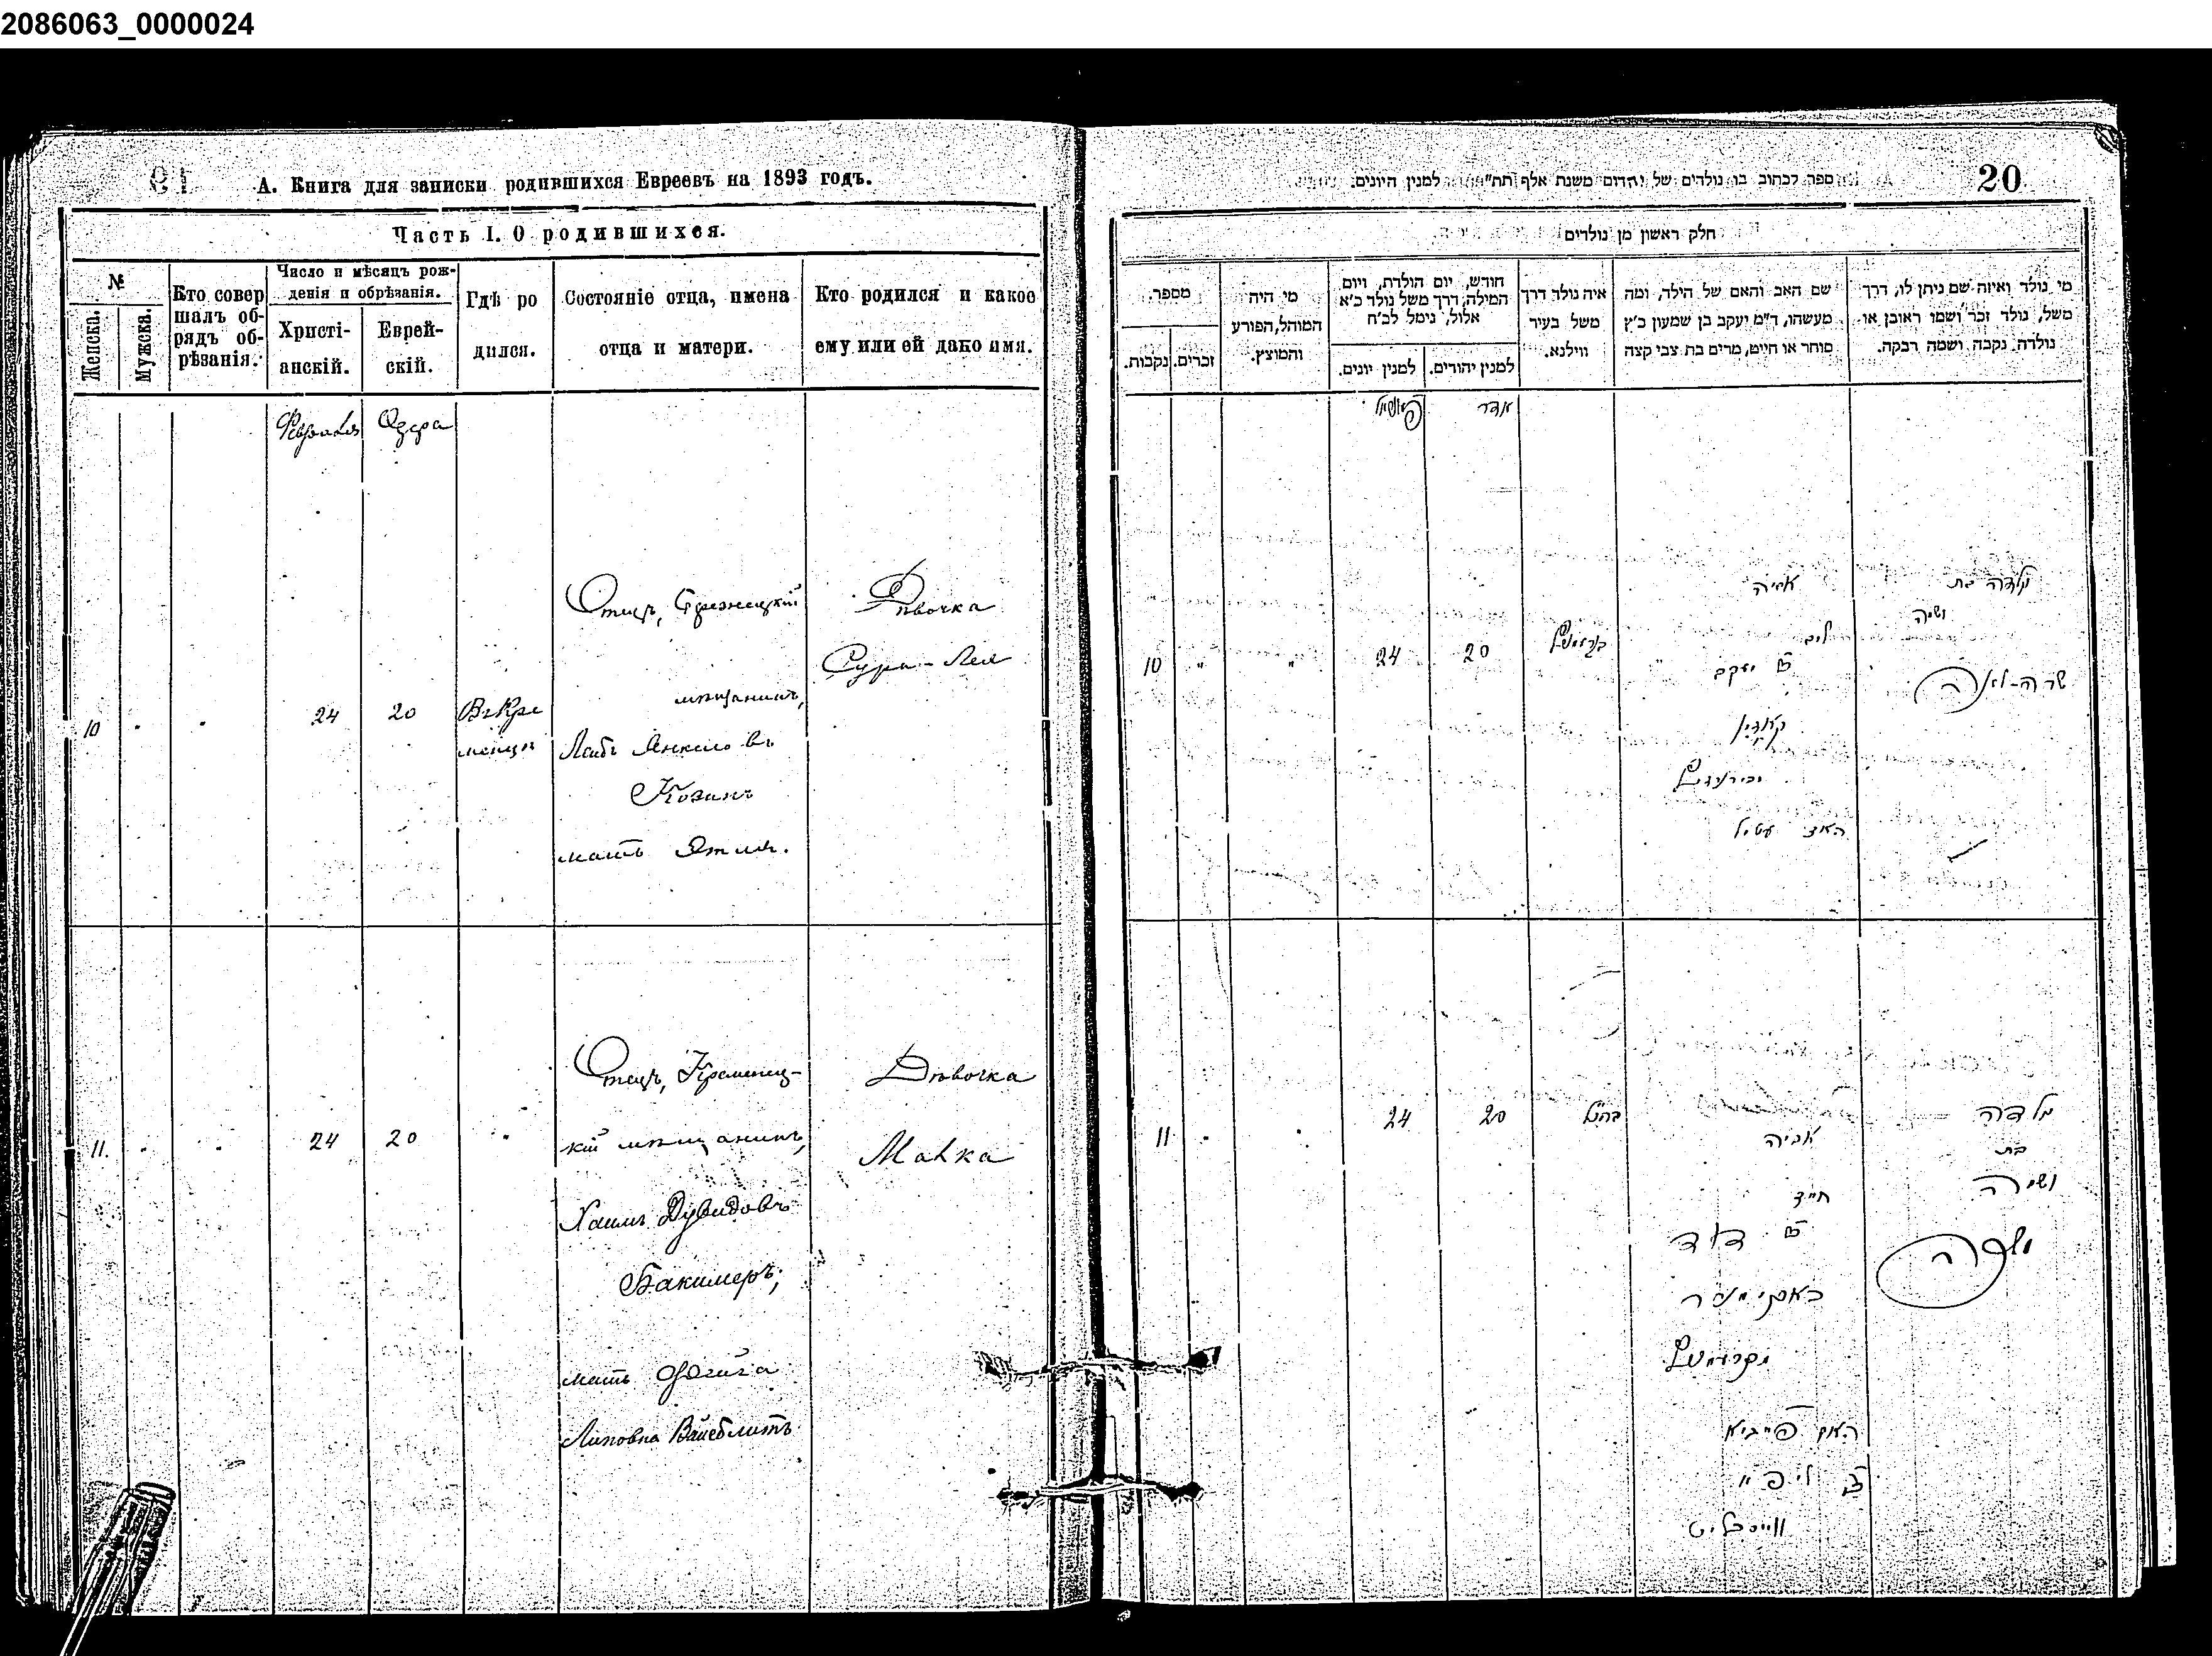 2086063_0000024
А. Книга для записки родившихся Евреевъ на 1893 годъ.
Часть I. О родившихся.
№
Женска.
Мужска.
Кто совер
шалъ об-
рядъ об-
рѣзанія.
Число и мѣсяцъ рож-
денія и обрѣзанія.
Христі-
анскій.
Еврей-
скій.
Гдѣ ро
дился.
Состояніе отца, имена
отца и матери.
Кто родился и какое
ему или ей дано имя.
Февраля
Адара
10
24
20
Въ Кре
менцѣ
Отецъ,
мѣщанинъ,
Лейбъ Янкелевъ
Козинъ
мать Этля.
Дѣвочка
Сура-Лея
11.
24
20
Отецъ, Кременец-
кій мѣщанинъ,
Хаимъ Дувидовъ
Бакимеръ,
мать Фейга
Липовна Вайсблитъ
Дѣвочка
Малка
20
ספר לכתוב בו נולדים של יהדום משנת אלף תת"
למנין היונים.
חלק ראשון מן נולדים
מספר.
זכרים.
נקבות.
מי היה
המוהל, הפורע
והמוצץ.
חודש, יום הולדת, ויום
המילה, דרך משל נולד כ'א
אלול, נימל לכ'ח
למנין יונים.
למנין יהודים.
איה נולד דרך
משל בעיר
ווילנא.
שם האב והאם של הילד, ומה
מעשהו, ד"מ יעקב בן שמעון כ'ץ
סוחר או חייט, מרים בת צבי קצה
מי נולד ואיזה שם ניתן לו, דרך
משל, נולד זכר ושמו ראובן או
נולדה נקבה ושמה רבקה.
אדר
10
24
20
אביה
ליב
יעקב
נולדה בת
ושמה
שרה-לאה
11
24
20
אביה
חיים
דוד
באקימער
ליפא
ווייסבליט
נולדה
בת
ושמה
מלכה